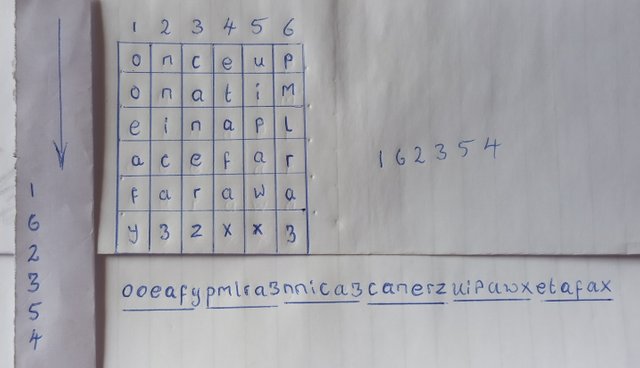 1 2 3 4 5 6
o n c e u p
o n a t i m
e i n a p l
a c e f a r
f a r a w a
y 3 z x x 3
1 6 2 3 5 4
1
6
2
3
5
4
ooeafypmlra3nnica3canerzuipawxetafax